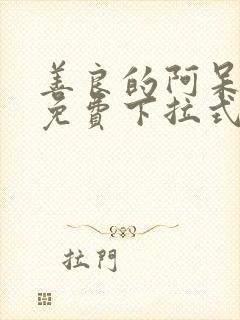 善良的阿呆
免費下拉式
拉門